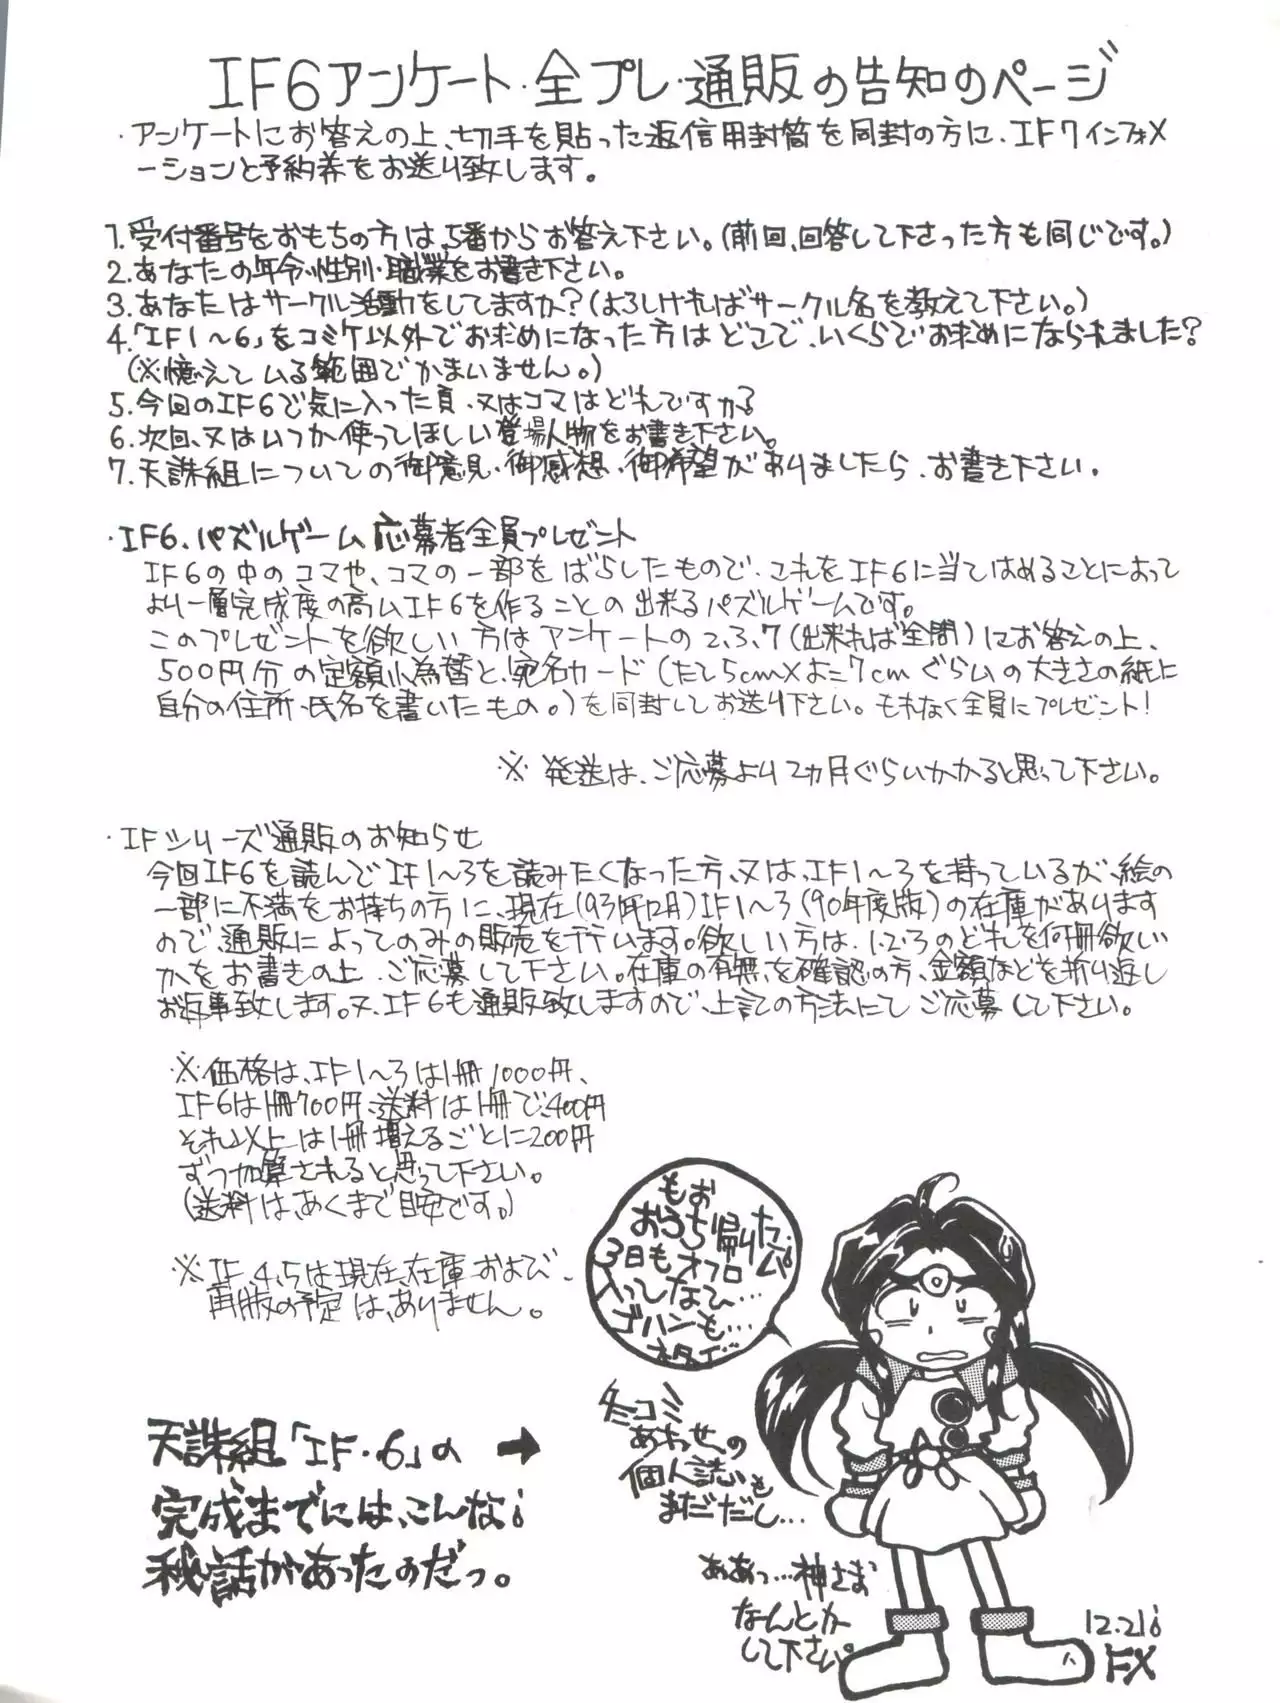 IF6アンケート・全プレ・通販の告知のページ
・アンケートにお答えの上、切手を貼った返信用封筒を同封の方に、IF7インフォメ
ーションと予約券をお送り致します。
1.受付番号をおもちの方は、5番からお答え下さい。(前回、回答して下さった方も同じです。)
2.あなたの年令・性別・職業をお書き下さい。
3.あなたはサークル活動をしてますか?(よろしければサークル名を教えて下さい。)
4.「IF1〜6」をコミケ以外でお求めになった方はどこで、いくらでお求めになられました?
(※憶えている範囲でかまいません。)
5.今回のIF6で気に入った頁、又はコマはどれですか?
6.次回、又はいつか使ってほしい登場人物をお書き下さい。
7.天誅組についての御意見・御感想・御希望がありましたら、お書き下さい。
・IF6、パズルゲーム応募者全員プレゼント
IF6の中のコマや、コマの一部をばらしたもので、これをIF6に当てはめることによって
より一層完成度の高いIF6を作ることの出来るパズルゲームです。
このプレゼントを欲しい方はアンケートの2、3、7(出来れば全問)にお答えの上、
500円分の定額小為替と、宛名カード(たて5cm×よこ7cmぐらいの大きさの紙に
自分の住所、氏名を書いたもの。)を同封してお送り下さい。もれなく全員にプレゼント!
※発送は、ご応募より2ヵ月ぐらいかかると思って下さい。
・IFシリーズ通販のお知らせ
今回IF6を読んでIF1〜3を読みたくなった方、又は、IF1〜3を持っているが、絵の
一部に不満をお持ちの方に、現在(93年12月)IF1〜3(90年度版)の在庫があります
ので、通販によってのみの販売を行います。欲しい方は、1・2・3のどれを何冊欲しい
かをお書きの上、ご応募して下さい。在庫の有無を確認の方、金額などを折り返し
お返事致します。又、IF6も通販致しますので、上記の方法にてご応募して下さい。
※価格は、IF1〜3は1冊1000円、
IF6は1冊700円、送料は1冊で、400円
それ以上は1冊増えるごとに200円
ずつ加算されると思って下さい。
(送料は、あくまで目安です。)
※IF、4、5は現在、在庫および、
再版の予定は、ありません。
もお
おうち帰りた
3日もオフロ
入ってない…
ゴハンも…
冬コミ
あわせの
個人誌も
まだだし…
天誅組「IF・6」の➡
完成までには、こんな
秘話があったのだっ。
ああっ…神さま
なんとか
して下さい。
12.21
FX